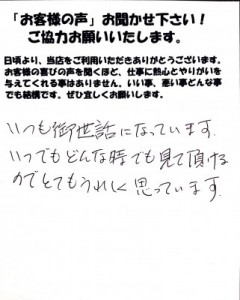 「お客様の声」お聞かせ下さい！
ご協力お願いいたします。
日頃より、当店をご利用いただきありがとうございます。
お客様の喜びの声を聞くほど、仕事に熱心とやりがいを
与えてくれる事はありません。いい事、悪い事どんな事
でも結構です。ぜひ宜しくお願いします。
いつも御世話になっています。
いつでもどんな時でも見て頂ける
のでとてもうれしく思っています。